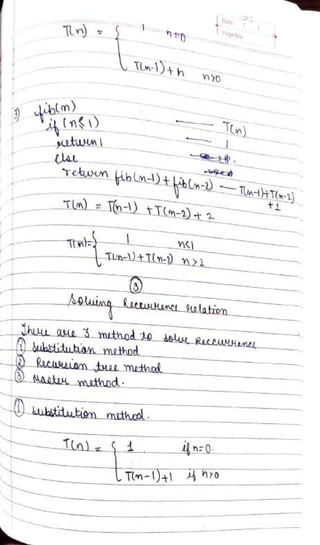 Date
Page No.
T(n) = { 1 n=0
T(n-1)+n n>0
3) fib(n) — T(n)
if (n≤1) — 1
return 1
else
return fib(n-1)+fib(n-2) — T(n-1)+T(n-2)
+1
T(n) = T(n-1) +T(n-2)+2
T(n)={ 1 n≤1
T(n-1)+T(n-2) n>1
③
Solving Reccurrence relation
There are 3 method to solve Reccurrence
① Substitution method
② Recursion tree method
③ Master method.
① Substitution method.
T(n) = { 1 if n=0.
T(n-1)+1 if n>0